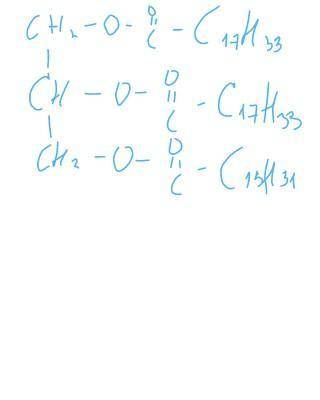 O
||
CH₂ – O – C – C₁₇H₃₃
|
O
||
CH – O – C – C₁₇H₃₃
|
O
||
CH₂ – O – C – C₁₅H₃₁